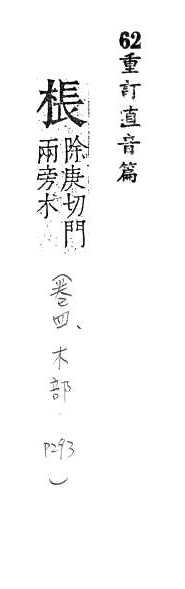 62重訂直音篇
棖
除庚切門
兩旁木
(卷四、木部.P293)